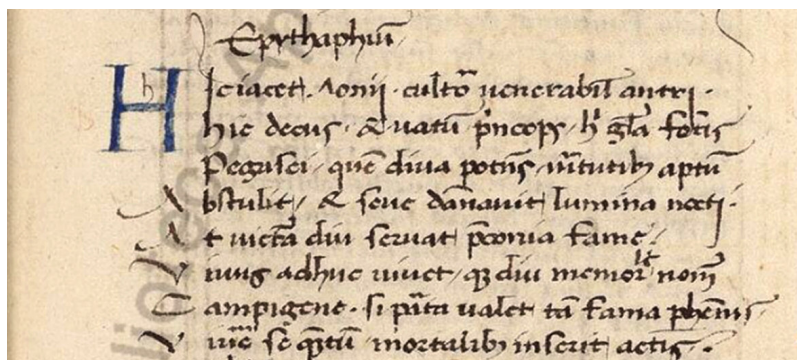 Epythaphiũ
Hic iacet. Aonij. cultor̃ uenerabil̃ antri.
hic decus. & uatũ p̃nceps. h̃ gl̃a fõtis
Pegasei. quẽ diua potẽs. uirtutib; aptũ
Abstulit. & seue dãnauit lumina necti.
At uicta diu seruat p̃conia fame.
Viuus adhuc uiuet. qz diu memor̃ nom̃
Campigene. si p̃ta ualet tã fama phẽnis
se q̃tũ mortalib; inserit actis.